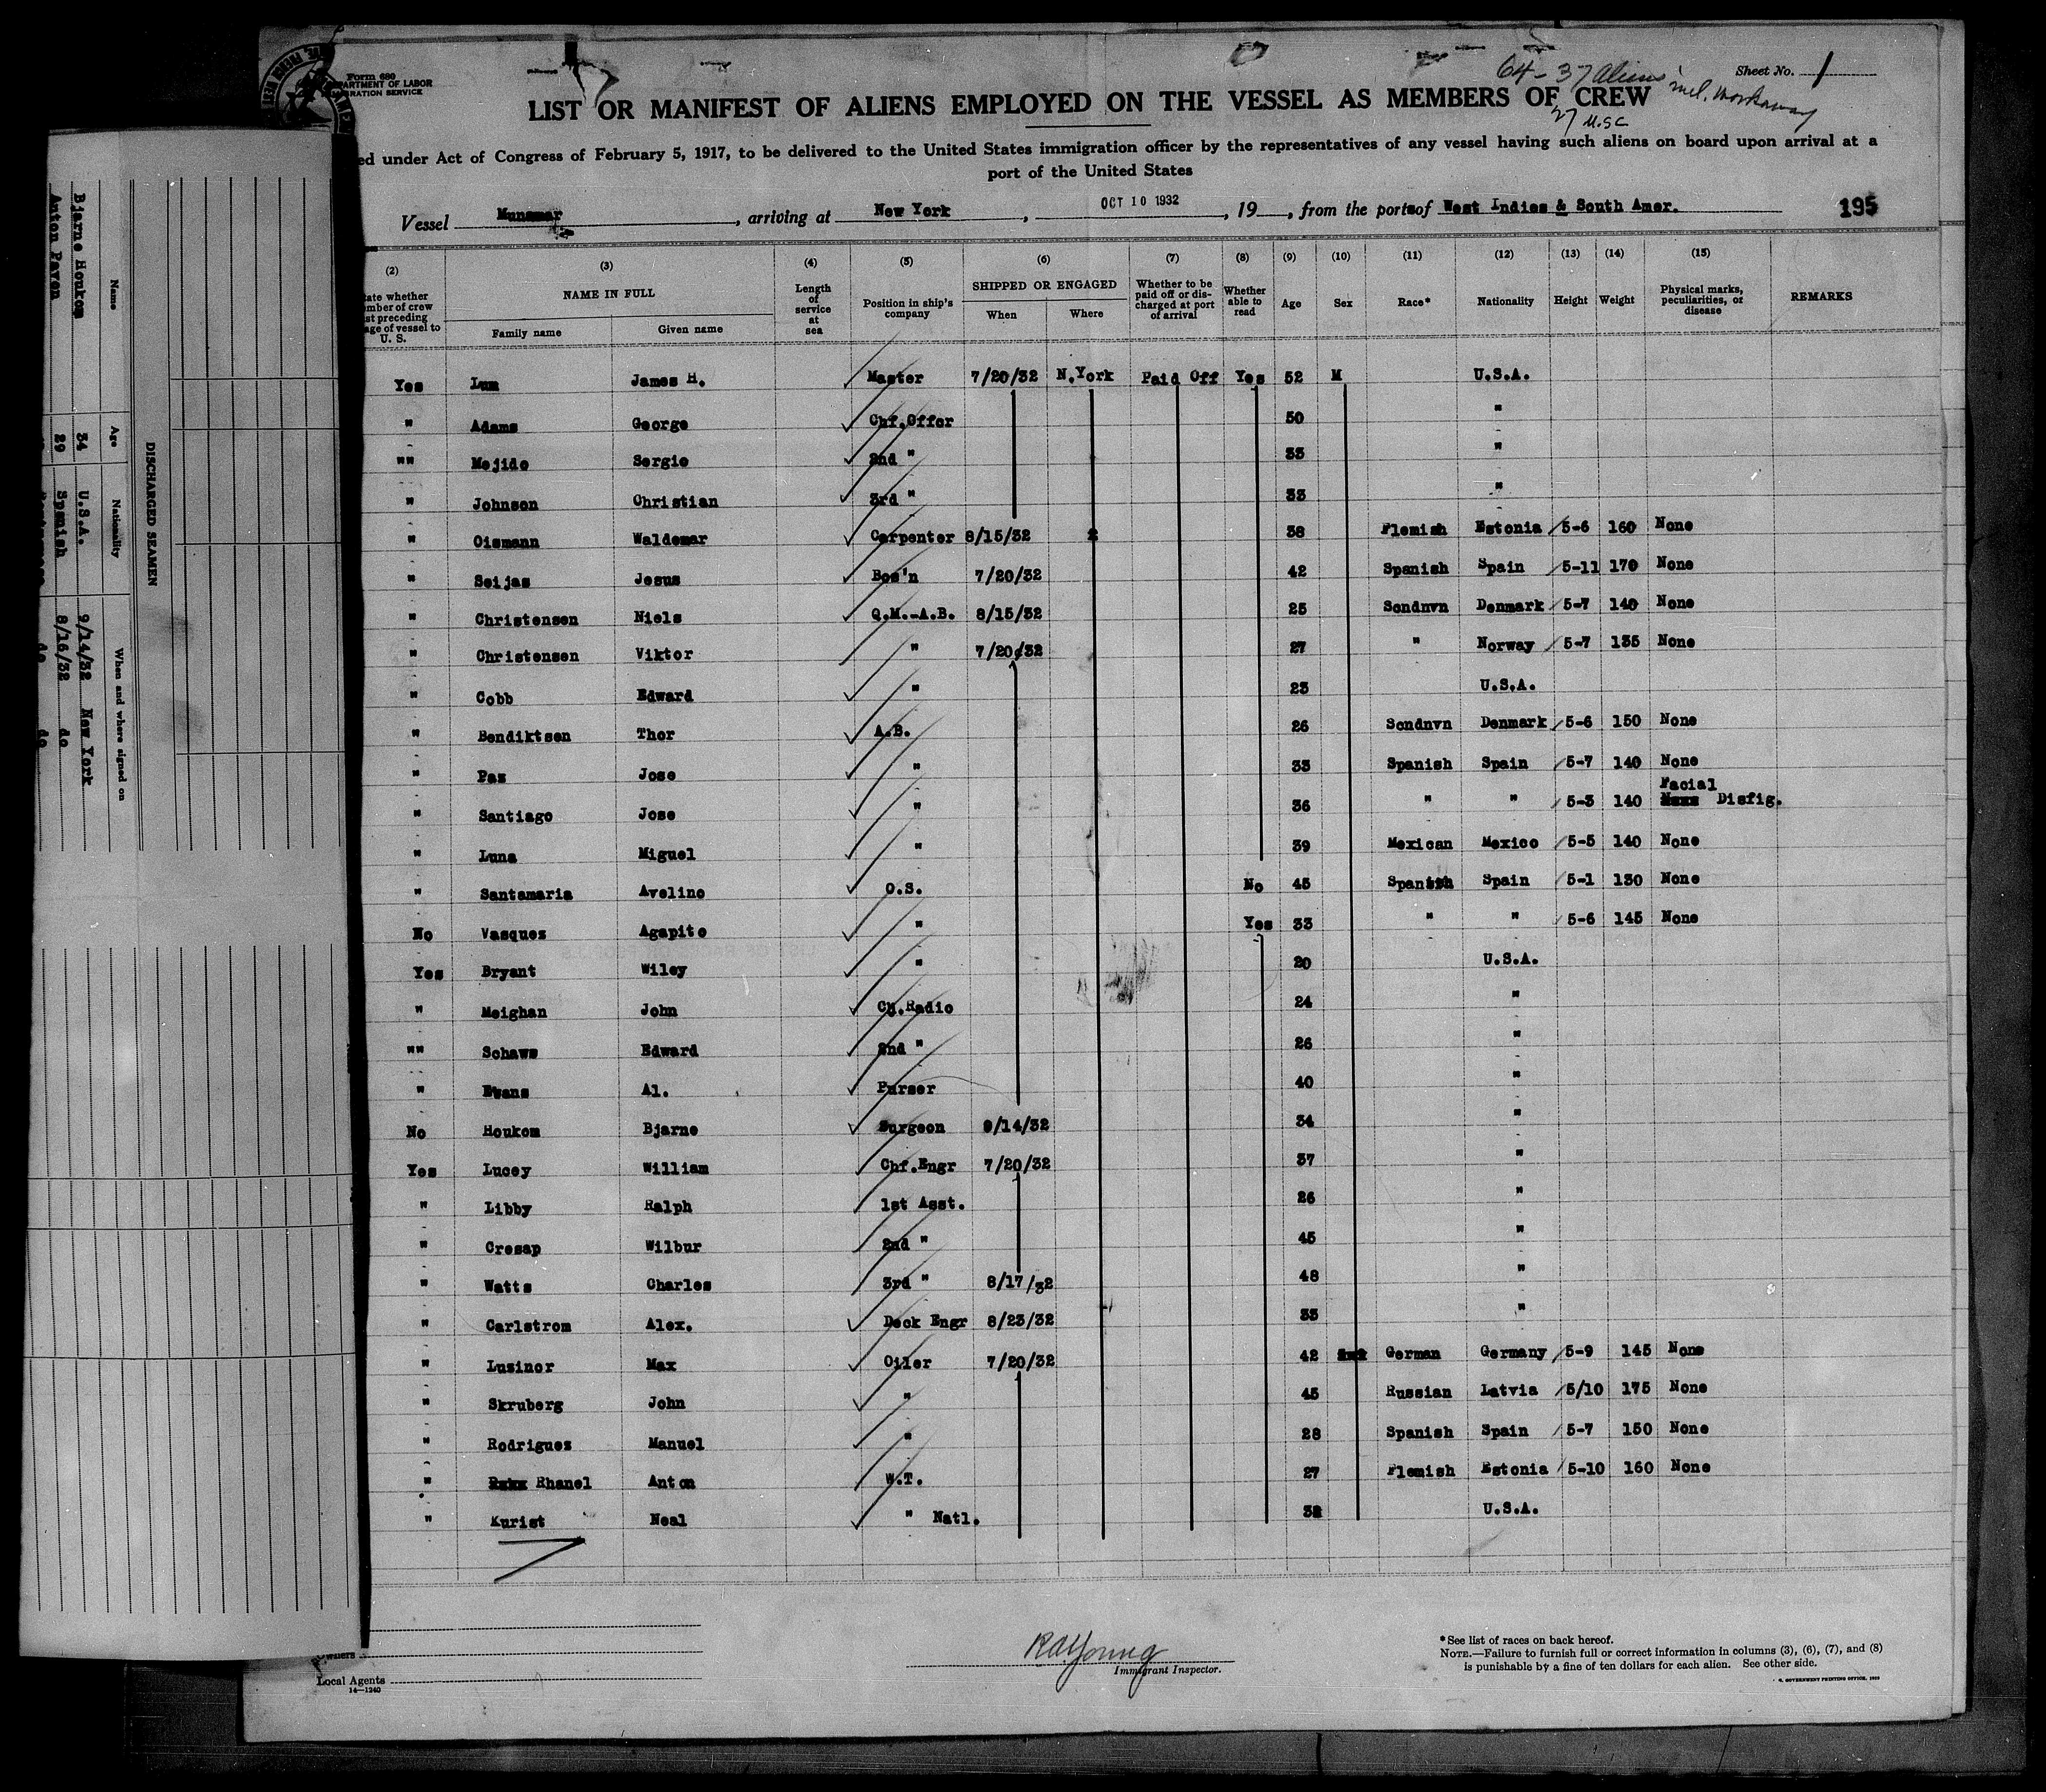 Form 680
DEPARTMENT OF LABOR
IMMIGRATION SERVICE
64 - 37 aliens incl. workaway
27 U.S.C
Sheet No. 1
LIST OR MANIFEST OF ALIENS EMPLOYED ON THE VESSEL AS MEMBERS OF CREW
ed under Act of Congress of February 5, 1917, to be delivered to the United States immigration officer by the representatives of any vessel having such aliens on board upon arrival at a
port of the United States
Vessel Munamar, arriving at New York, OCT 10 1932, 19, from the ports of West Indies & South Amer. 195
(2) (3) (4) (5) (6) (7) (8) (9) (10) (11) (12) (13) (14) (15)
tate whether
mber of crew
st preceding
age of vessel to
U. S.
NAME IN FULL
Family name Given name
Length of service at sea
Position in ship's company
SHIPPED OR ENGAGED
When Where
Whether to be paid off or discharged at port of arrival
Whether able to read
Age Sex Race* Nationality Height Weight
Physical marks, peculiarities, or disease
REMARKS
Yes Lum James H. Master 7/20/32 N.York Paid Off Yes 52 M U.S.A.
" Adams George Chf.Offer 50 "
"" Mejido Sergio 2nd " 33 "
" Johnson Christian 3rd " 33 "
" Oismann Waldemar Carpenter 8/15/32 38 Flemish Estonia 5-6 160 None
" Seijas Jesus Bos'n 7/20/32 42 Spanish Spain 5-11 170 None
" Christensen Niels Q.M.-A.B. 8/15/32 25 Scndnvn Denmark 5-7 140 None
" Christensen Viktor " 7/20/32 27 " Norway 5-7 135 None
" Cobb Edward " 23 U.S.A.
" Bendiktsen Thor A.B. 26 Scndnvn Denmark 5-6 150 None
" Paz Jose " 33 Spanish Spain 5-7 140 None
" Santiago Jose " 36 " " 5-3 140 Facial Disfig.
" Luna Miguel " 39 Mexican Mexico 5-5 140 None
" Santamaria Avelino O.S. No 45 Spanish Spain 5-1 130 None
No Vasquez Agapito " Yes 33 " " 5-6 145 None
Yes Bryant Wiley " 20 U.S.A.
" Meighan John Ch.Radio 24 "
"" Schaws Edward 2nd " 26 "
" Evans Al. Purser 40 "
No Houkom Bjarne Surgeon 9/14/32 34 "
Yes Lucey William Chf.Engr 7/20/32 37 "
" Libby Ralph 1st Asst. 26 "
" Cresap Wilbur 2nd " 45 "
" Watts Charles 3rd " 8/17/32 48 "
" Carlstrom Alex. Deck Engr 8/23/32 33 "
" Lusinor Max Oiler 7/20/32 42 German Germany 5-9 145 None
" Skruberg John " 45 Russian Latvia 5/10 175 None
" Rodriguez Manuel " 28 Spanish Spain 5-7 150 None
" Rhanel Anton W.T. 27 Flemish Estonia 5-10 160 None
" Kurist Neal " Natl. 32 U.S.A.
Owners
Local Agents
14—1240
R A Young
Immigrant Inspector.
*See list of races on back hereof.
NOTE.—Failure to furnish full or correct information in columns (3), (6), (7), and (8)
is punishable by a fine of ten dollars for each alien. See other side.
GOVERNMENT PRINTING OFFICE
DISCHARGED SEAMEN
Name Age Nationality When and where signed on
Bjarne Houkom 34 U.S.A. 9/14/32 New York
Anton Pavon 29 Spanish 8/16/32 do
do do